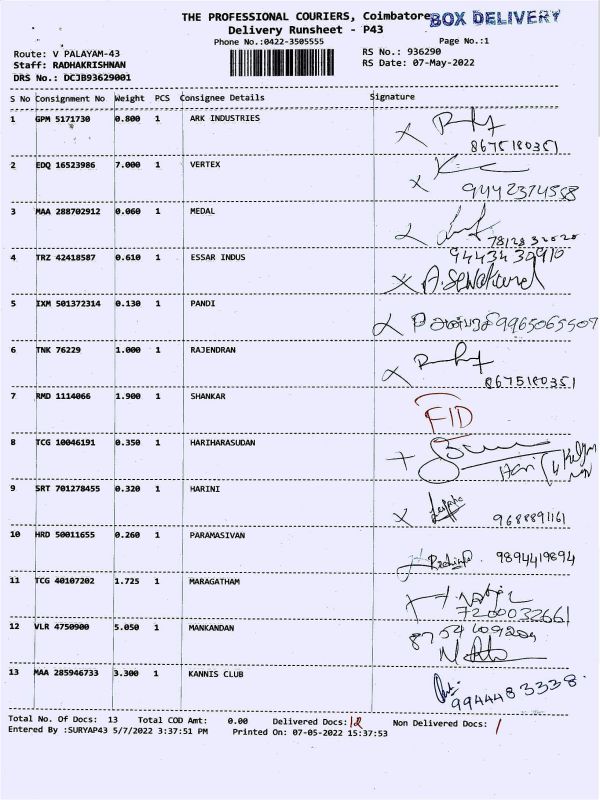 THE PROFESSIONAL COURIERS, Coimbatore BOX DELIVERY
Delivery Runsheet - P43
Phone No.:0422-3505555 Page No.:1
Route: V PALAYAM-43 RS No.: 936290
Staff: RADHAKRISHNAN RS Date: 07-May-2022
DRS No.: DCJB93629001
S No Consignment No Weight PCS Consignee Details Signature
1 GPM 5171730 0.800 1 ARK INDUSTRIES
8675180351
2 EDQ 16523986 7.000 1 VERTEX
9442374558
3 MAA 288702912 0.060 1 MEDAL
4 TRZ 42418587 0.610 1 ESSAR INDUS 9443430910
5 IXM 501372314 0.130 1 PANDI
9965065507
6 TNK 76229 1.000 1 RAJENDRAN
8675180351
7 RMD 1114066 1.900 1 SHANKAR
FID
8 TCG 10046191 0.350 1 HARIHARASUDAN
9 SRT 701278455 0.320 1 HARINI
9688891161
10 HRD 50011655 0.260 1 PARAMASIVAN
9894419894
11 TCG 40107202 1.725 1 MARAGATHAM
7200032661
12 VLR 4750900 5.050 1 MANKANDAN
13 MAA 285946733 3.300 1 KANNIS CLUB
9944483338
Total No. Of Docs: 13 Total COD Amt: 0.00 Delivered Docs: 12 Non Delivered Docs: 1
Entered By :SURYAP43 5/7/2022 3:37:51 PM Printed On: 07-05-2022 15:37:53